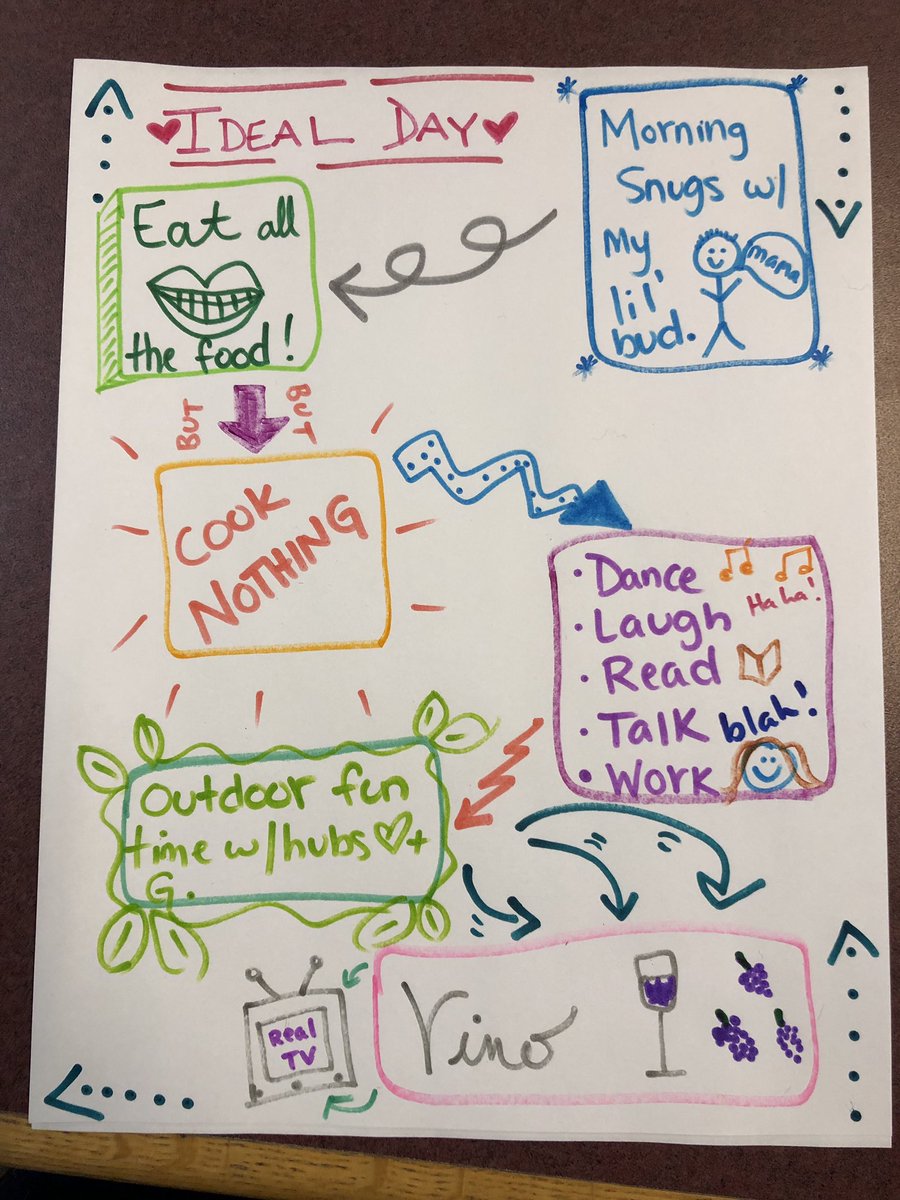 IDEAL DAY
Morning
Snugs w/
My
lil'
bud.
mama
Eat all
the food!
BUT
BUT
COOK
NOTHING
• Dance
• Laugh Haha!
• Read
• Talk blah!
• Work
Outdoor fun
time w/hubs♡+
G.
Vino
Real
TV